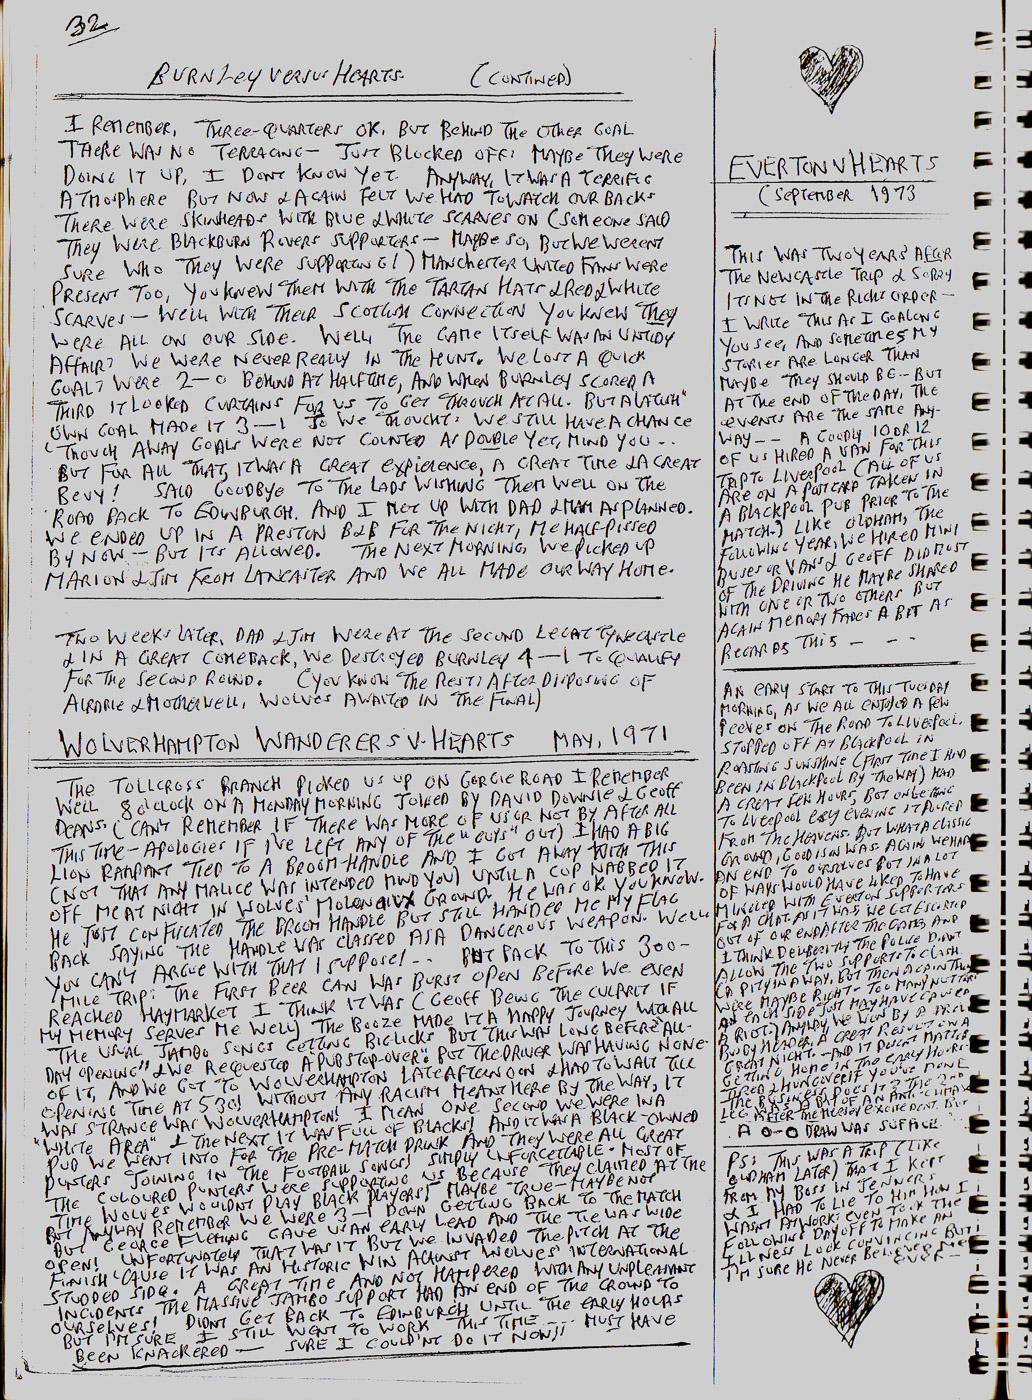 32
BURNLEY VERSUS HEARTS. (CONTINED)
I REMEMBER, THREE-QUARTERS OK, BUT BEHIND THE OTHER GOAL
THERE WAS NO TERRACING - JUST BLOCKED OFF: MAYBE THEY WERE
DOING IT UP, I DONT KNOW YET. ANYWAY, IT WAS A TERRIFIC
ATMOSPHERE BUT NOW & AGAIN FELT WE HAD TO WATCH OUR BACKS
THERE WERE SKINHEADS WITH BLUE & WHITE SCARVES ON (SOMEONE SAID
THEY WERE BLACKBURN ROVERS SUPPORTERS - MAYBE SO, BUT WE WERENT
SURE WHO THEY WERE SUPPORTING!) MANCHESTER UNITED FANS WERE
PRESENT TOO, YOU KNEW THEM WITH THE TARTAN HATS & RED & WHITE
SCARVES - WELL WITH THEIR SCOTTISH CONNECTION YOU KNEW THEY
WERE ALL ON OUR SIDE. WELL THE GAME ITSELF WAS AN UNTIDY
AFFAIR? WE WERE NEVER REALLY IN THE HUNT. WE LOST A QUICK
GOAL? WERE 2-0 BEHIND AT HALFTIME, AND WHEN BURNLEY SCORED A
THIRD IT LOOKED CURTAINS FOR US TO GET THROUGH AT ALL. BUT A LATISH"
OWN GOAL MADE IT 3-1 SO WE THOUGHT: WE STILL HAVE A CHANCE
(THOUGH AWAY GOALS WERE NOT COUNTED AS DOUBLE YET, MIND YOU..
BUT FOR ALL THAT, IT WAS A GREAT EXPIERENCE, A GREAT TIME & A GREAT
BEVY! SAID GOODBYE TO THE LADS WISHING THEM WELL ON THE
ROAD BACK TO EDINBURGH. AND I MET UP WITH DAD & MAM AS PLANNED.
WE ENDED UP IN A PRESTON B&B FOR THE NIGHT, ME HALF-PISSED
BY NOW - BUT ITS ALLOWED. THE NEXT MORNING, WE PICKED UP
MARION & JIM FROM LANCASTER AND WE ALL MADE OUR WAY HOME.
TWO WEEKS LATER, DAD & JIM WERE AT THE SECOND LEG AT TYNECASTLE
& IN A GREAT COMEBACK, WE DESTROYED BURNLEY 4-1 TO QUALIFY
FOR THE SECOND ROUND. (YOU KNOW THE REST: AFTER DISPOSING OF
AIRDRIE & MOTHERWELL, WOLVES AWAITED IN THE FINAL)
WOLVERHAMPTON WANDERERS V. HEARTS MAY, 1971
THE TOLLCROSS BRANCH PICKED US UP ON GORGIE ROAD I REMEMBER
WELL 8 O'CLOCK ON A MONDAY MORNING JOINED BY DAVID DOWNIE & GEOFF
DEANS. (CAN'T REMEMBER IF THERE WAS MORE OF US OR NOT BY AFTER ALL
THIS TIME - APOLOGIES IF I'VE LEFT ANY OF THE "GUYS" OUT) I HAD A BIG
LION RAMPANT TIED TO A BROOM-HANDLE AND I GOT AWAY WITH THIS
(NOT THAT ANY MALICE WAS INTENDED MIND YOU) UNTIL A COP NABBED IT
OFF ME AT NIGHT IN WOLVES' MOLENEUX GROUND. HE WAS OK YOU KNOW.
HE JUST CONFISCATED THE BROOM HANDLE BUT STILL HANDED ME MY FLAG
BACK SAYING THE HANDLE WAS CLASSED AS A DANGEROUS WEAPON. WELL
YOU CAN'T ARGUE WITH THAT I SUPPOSE!.. BUT BACK TO THIS 300-
MILE TRIP: THE FIRST BEER CAN WAS BURST OPEN BEFORE WE EVEN
REACHED HAYMARKET I THINK IT WAS (GEOFF BEING THE CULPRIT IF
MY MEMORY SERVES ME WELL) THE BOOZE MADE IT A HAPPY JOURNEY WITH ALL
THE USUAL JAMBO SONGS GETTING BIG LICKS BUT THIS WAS LONG BEFORE "ALL-
DAY OPENING" & WE REQUESTED A "PUB STOP-OVER". BUT THE DRIVER WAS HAVING NONE
OF IT, AND WE GOT TO WOLVERHAMPTON LATE AFTERNOON & HAD TO WAIT TILL
OPENING TIME AT 5.30! WITHOUT ANY RACISM MEANT HERE BY THE WAY, IT
WAS STRANGE WAS WOLVERHAMPTON! I MEAN ONE SECOND WE WERE IN A
"WHITE AREA" & THE NEXT IT WAS FULL OF BLACKS! AND IT WAS A BLACK-OWNED
PUB WE WENT INTO FOR THE PRE-MATCH DRINK AND THEY WERE ALL GREAT
PUNTERS JOINING IN THE FOOTBALL SONGS! SIMPLY UNFORGETTABLE. MOST OF
THE COLOURED PUNTERS WERE SUPPORTING US BECAUSE THEY CLAIMED AT THE
TIME WOLVES WOULDN'T PLAY BLACK PLAYERS! MAYBE TRUE - MAYBE NOT
BUT ANYWAY REMEMBER WE WERE 3-1 DOWN GETTING BACK TO THE MATCH
BUT GEORGE FLEMING GAVE US AN EARLY LEAD AND THE TIE WAS WIDE
OPEN! UNFORTUNATELY THAT WAS IT BUT WE INVADED THE PITCH AT THE
FINISH 'CAUSE IT WAS AN HISTORIC WIN AGAINST WOLVES' INTERNATIONAL
STUDDED SIDE. A GREAT TIME AND NOT HAMPERED WITH ANY UNPLEASANT
INCIDENTS THE MASSIVE JAMBO SUPPORT HAD AN END OF THE GROUND TO
OURSELVES! DIDNT GET BACK TO EDINBURGH UNTIL THE EARLY HOURS
BUT I'M SURE I STILL WENT TO WORK THIS TIME --- MUST HAVE
BEEN KNACKERED - SURE I COULDN'T DO IT NOW!!
EVERTON V HEARTS
(SEPTEMBER 1973
THIS WAS TWO YEARS AFTER
THE NEWCASTLE TRIP & SORRY
ITS NOT IN THE RIGHT ORDER -
I WRITE THIS AS I GO ALONG
YOU SEE, AND SOMETIMES MY
STORIES ARE LONGER THAN
MAYBE THEY SHOULD BE - BUT
AT THE END OF THE DAY, THE
EVENTS ARE THE SAME ANY-
WAY -- A GOODLY 10 OR 12
OF US HIRED A VAN FOR THIS
TRIP TO LIVERPOOL (ALL OF US
ARE ON A POSTCARD TAKEN IN
A BLACKPOOL PUB PRIOR TO THE
MATCH.) LIKE OLDHAM, THE
FOLLOWING YEAR, WE HIRED MINI
BUSES OR VANS & GEOFF DID MOST
OF THE DRIVING HE MAYBE SHARED
WITH ONE OR TWO OTHERS BUT
AGAIN MEMORY FADES A BIT AS
REGARDS THIS - - -
AN EARY START TO THIS TUESDAY
MORNING, AS WE ALL ENJOYED A FEW
PEEVES ON THE ROAD TO LIVERPOOL.
STOPPED OFF AT BLACKPOOL IN
ROASTING SUNSHINE (FIRST TIME I HAD
BEEN IN BLACKPOOL BY THE WAY) HAD
A GREAT FEW HOURS, BUT ON GETTING
TO LIVERPOOL EARLY EVENING IT POURED
FROM THE HEAVENS. BUT WHAT A CLASSIC
GROUND, GOODISON WAS. AGAIN WE HAD
AN END TO OURSELVES BUT IN A LOT
OF WAYS WOULD HAVE LIKED TO HAVE
MINGLED WITH EVERTON SUPPORTERS
FOR A CHAT. AS IT WAS WE GOT ESCORTED
OUT OF OUR END AFTER THE GAME, AND
I THINK DELIBERTLY THE POLICE DIDNT
ALLOW THE TWO SUPPORTS TO CLASH
(A PITY IN A WAY, BUT THEN AGAIN THEY
WERE MAYBE RIGHT - TOO MANY NUTTERS
ON EACH SIDE JUST MAY HAVE CAUSED
A RIOT.) ANYWAY WE WON BY A
BUSBY HEADER, A GREAT RESULT ON A
GREAT NIGHT - AND IT DOESNT MATTER
GETTING HOME IN THE EARLY HOURS
TIRED & HUNGOVER IF YOU'VE DONE
THE BUSINESS DOES IT? THE 2ND
LEG WAS A BIT OF AN ANTI-CLIMAX
AFTER THE MERSEY EXCITEMENT. BUT
A 0-0 DRAW WAS SUFFICE.
PS: THIS WAS A TRIP (LIKE
OLDHAM LATER) THAT I KEPT
FROM MY BOSS IN JENNERS
& I HAD TO LIE TO HIM HOW I
WASNT AT WORK: EVEN TOOK THE
FOLLOWING DAY OFF TO MAKE AN
ILLNESS LOOK CONVINCING BUT
I'M SURE HE NEVER BELIEVED ME!
EVER --